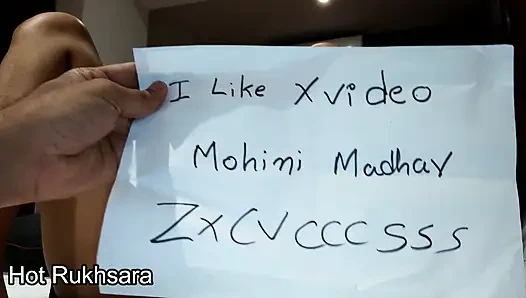 I Like Xvideo
Mohini Madhav
ZXCVCCCSSS
Hot Rukhsara